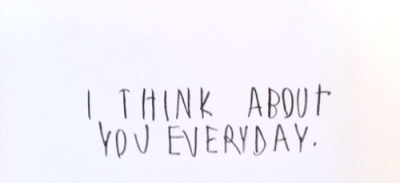 I THINK ABOUT
YOU EVERYDAY.